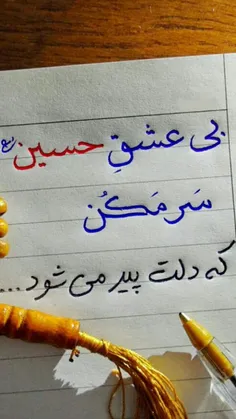 بی عشقِ حسین ع
سَر مَکُن
که دلت پیر می شود...